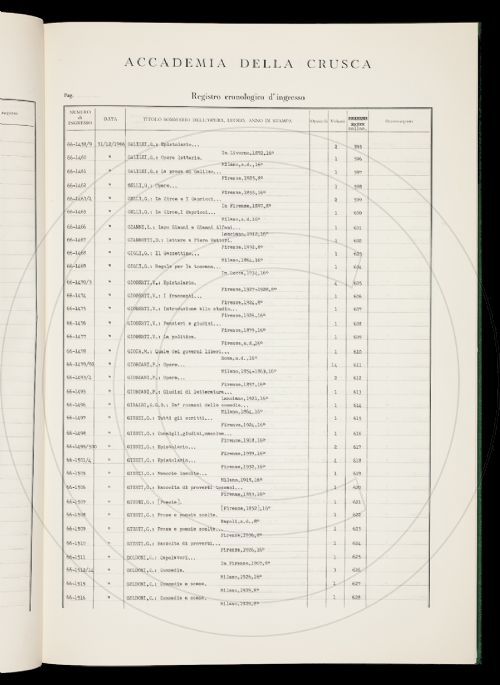 ACCADEMIA DELLA CRUSCA
Pag.
Registro cronologico d'ingresso
NUMERO di INGRESSO DATA TITOLO SOMMARIO DELL'OPERA, LUOGO, ANNO DI STAMPA Opuscoli Volumi
66-1458/9 31/12/1966 GALILEI,G.: Epistolario... 2 595
In Livorno,1872,16°
66-1460 " GALILEI,G.: Opere letterie. 1 596
Milano,s.d.,16°
66-1461 " GALILEI,G.: La prosa di Galileo... 1 597
Firenze,1925,8°
66-1462 " GELLI,G.: Opere... 1 598
Firenze,1855,16°
" GELLI,G.: La Circe e I Capricci... 2 599
In Firenze,1897,8°
66-1465 " GELLI,G.: La Circe,I Capricci... 1 600
Milano,s.d.16°
66-1466 " GIANNI,L.: Lapo Gianni e Gianni Alfani... 1 601
Lanciano,1912,16°
66-1467 " GIANNOTTI,D.: Lettere a Piero Vettori. 1 602
Firenze,1932,8°
66-1468 " GIGLI,G.: Il Gazzettino... 1 603
Milano,1864,16°
" GIGLI,G.: Regole per la toscana... 1 604
In Lucca,1734,16°
66-1470/3 " GIOBERTI,V.: Epistolario. 4 605
Firenze,1927-1928,8°
66-1474 " GIOBERTI,V.: I frammenti... 1 606
Firenze,1924,8°
66-1475 " GIOBERTI,V.: Introduzione allo studio... 1 607
Firenze,1926,16°
66-1476 " GIOBERTI,V.: Pensieri e giudizi... 1 608
Firenze,1859,16°
66-1477 " GIOBERTI,V.: La politica. 1 609
Firenze,s.d,16°
66-1478 " GIOIA,M.: Quale dei governi liberi... 1 610
Roma,s.d.,16°
" GIORDANI,P.: Opere... 14 611
Milano,1854-1863,16°
66-1493/4 " GIORDANI,P.: Opere... 2 612
Firenze,1857,16°
66-1495 " GIORDANI,P.: Giudizi di letteratura... 1 613
Lanciano,1921,16°
66-1496 " GIRALDI,G.G.B.: De' romanzi delle comedie... 1 614
Milano,1864,16°
66-1497 " GIUSTI,G.: Tutti gli scritti... 1 615
Firenze,1924,16°
66-1498 " GIUSTI,G.: Consigli,giudizi,massime... 1 616
Firenze,1918,16°
66-1499/500 " GIUSTI,G.: Epistolario... 2 617
Firenze,1859,16°
66-1501/4 " GIUSTI,G.: Epistolario... 4 618
Firenze,1932,16°
66-1505 " GIUSTI,G.: Memorie inedite... 1 619
Milano,1915,16°
66-1506 " GIUSTI,G.: Raccolta di proverbi toscani... 1 620
Firenze,1853,16°
66-1507 " GIUSTI,G.: [Poesie]. 1 621
[Firenze,1852],16°
66-1508 " GIUSTI,G.: Prose e poesie scelte. 1 622
Napoli,s.d.,8°
66-1509 " GIUSTI,G.: Prose e poesie scelte... 1 623
Firenze,1926,8°
66-1510 " GIUSTI,G.: Raccolta di proverbi... 1 624
Firenze,1926,16°
66-1511 " GOLDONI,C.: Capolavori... 1 625
In Firenze,1907,8°
66-1512/14 " GOLDONI,C.: Commedie. 3 626
Milano,1926,16°
66-1515 " GOLDONI,C.: Commedie e scene. 1 627
Milano,1929,8°
66-1516 " GOLDONI,C.: Commedie e scene. 1 628
Milano,1939,8°